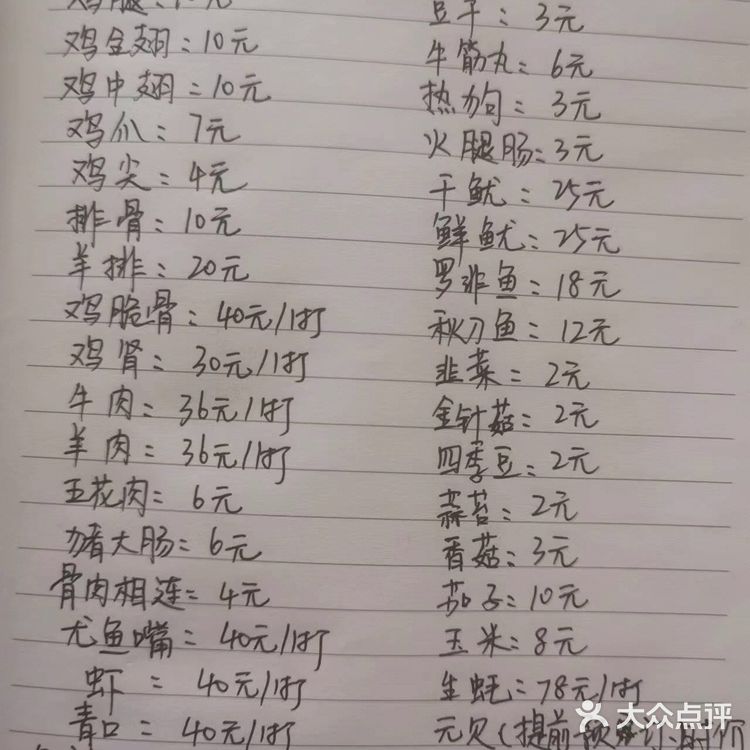 鸡全翅:10元
鸡中翅:10元
鸡爪:7元
鸡尖:4元
排骨:10元
羊排:20元
鸡脆骨:40元/1打
鸡肾:30元/1打
牛肉:36元/1打
羊肉:36元/1打
五花肉:6元
猪大肠:6元
骨肉相连:4元
尤鱼嘴:40元/1打
虾:40元/1打
青口:40元/1打
豆干:3元
牛筋丸:6元
热狗:3元
火腿肠:3元
干鱿:25元
鲜鱿:25元
罗非鱼:18元
秋刀鱼:12元
韭菜:2元
金针菇:2元
四季豆:2元
蒜苔:2元
香菇:3元
茄子:10元
玉米:8元
生蚝:78元/1打
元贝(提前
大众点评